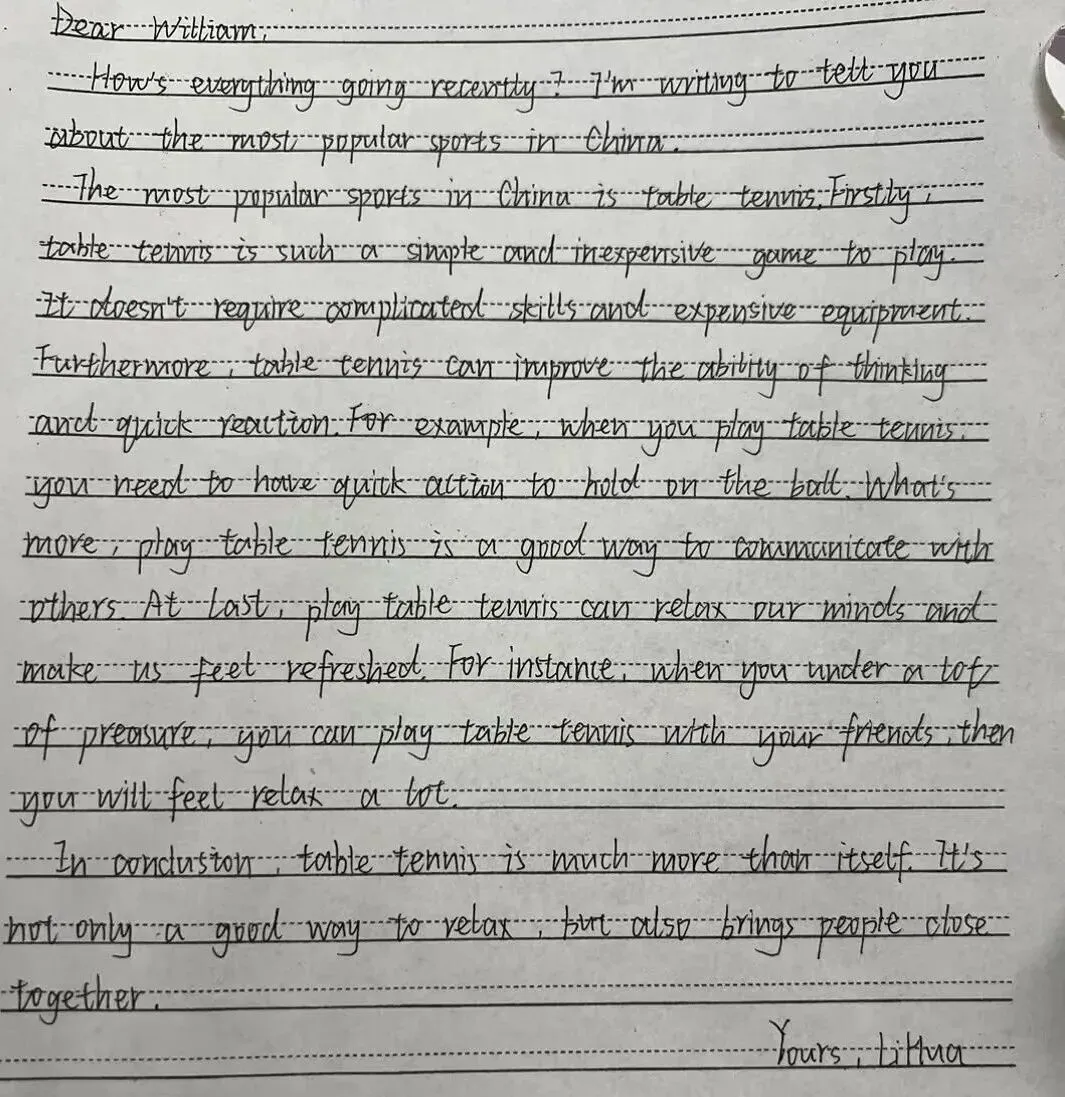 Dear William,
How's everything going recently? I'm writing to tell you
about the most popular sports in China.
The most popular sports in China is table tennis. Firstly,
table tennis is such a simple and inexpensive game to play.
It doesn't require complicated skills and expensive equipment.
Furthermore, table tennis can improve the ability of thinking
and quick reaction. For example, when you play table tennis,
you need to have quick action to hold on the ball. What's
more, play table tennis is a good way to communicate with
others. At last, play table tennis can relax our minds and
make us feel refreshed. For instance, when you under a lot
of preasure, you can play table tennis with your friends, then
you will feel relax a lot.
In conclusion, table tennis is much more than itself. It's
not only a good way to relax, but also brings people close
together.
Yours, Li Hua